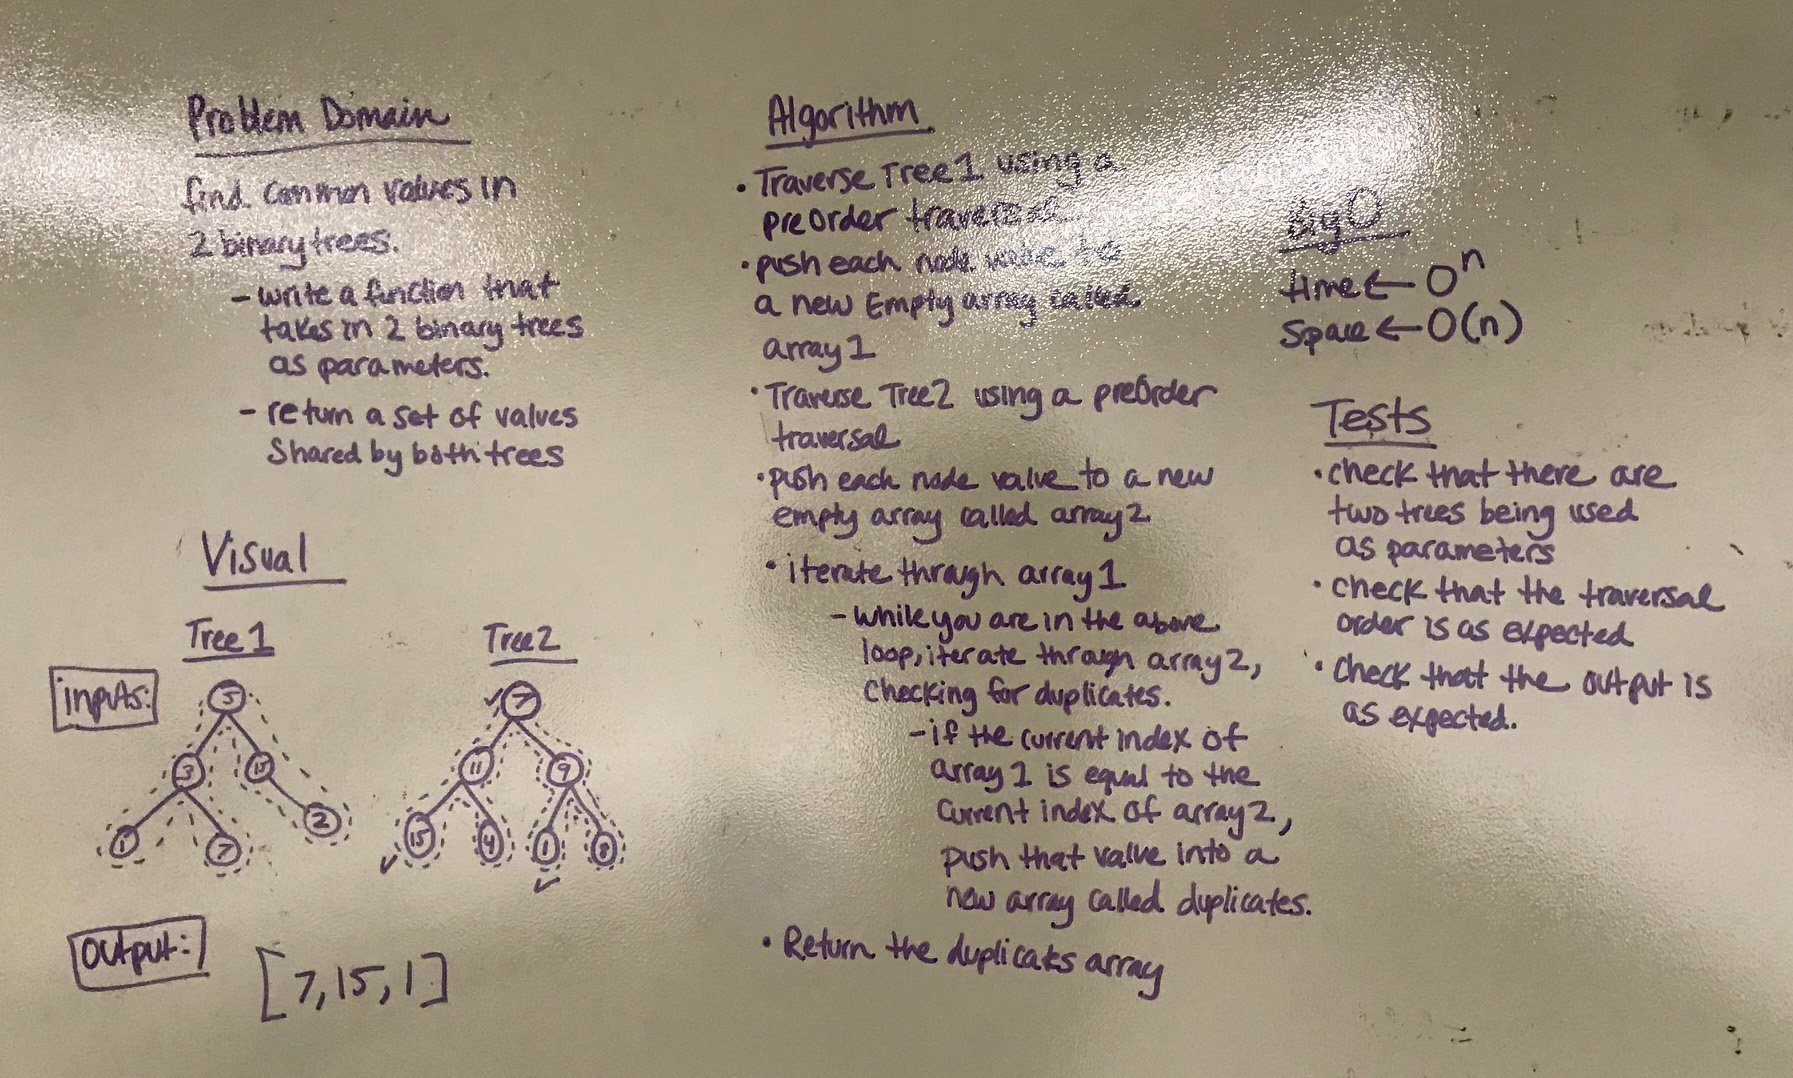 Problem Domain
find common values in
2 binary trees.
- write a function that
takes in 2 binary trees
as parameters.
- return a set of values
Shared by both trees
Visual
Tree 1
Tree2
inputs:
5
3
15
1
7
2
7
11
9
15
4
1
8
output:
[7,15,1]
Algorithm
• Traverse Tree1 using a
preOrder traversal
• push each node value to
a new Empty array called
array1
• Traverse Tree2 using a preOrder
traversal
• push each node value to a new
empty array called array2
• iterate through array1
- while you are in the above
loop, iterate through array2,
checking for duplicates.
- if the current index of
array1 is equal to the
current index of array2,
push that value into a
new array called duplicates.
• Return the duplicats array
Big O
time ← Oⁿ
Space ← O(n)
Tests
• check that there are
two trees being used
as parameters
• check that the traversal
order is as expected
• check that the output is
as expected.